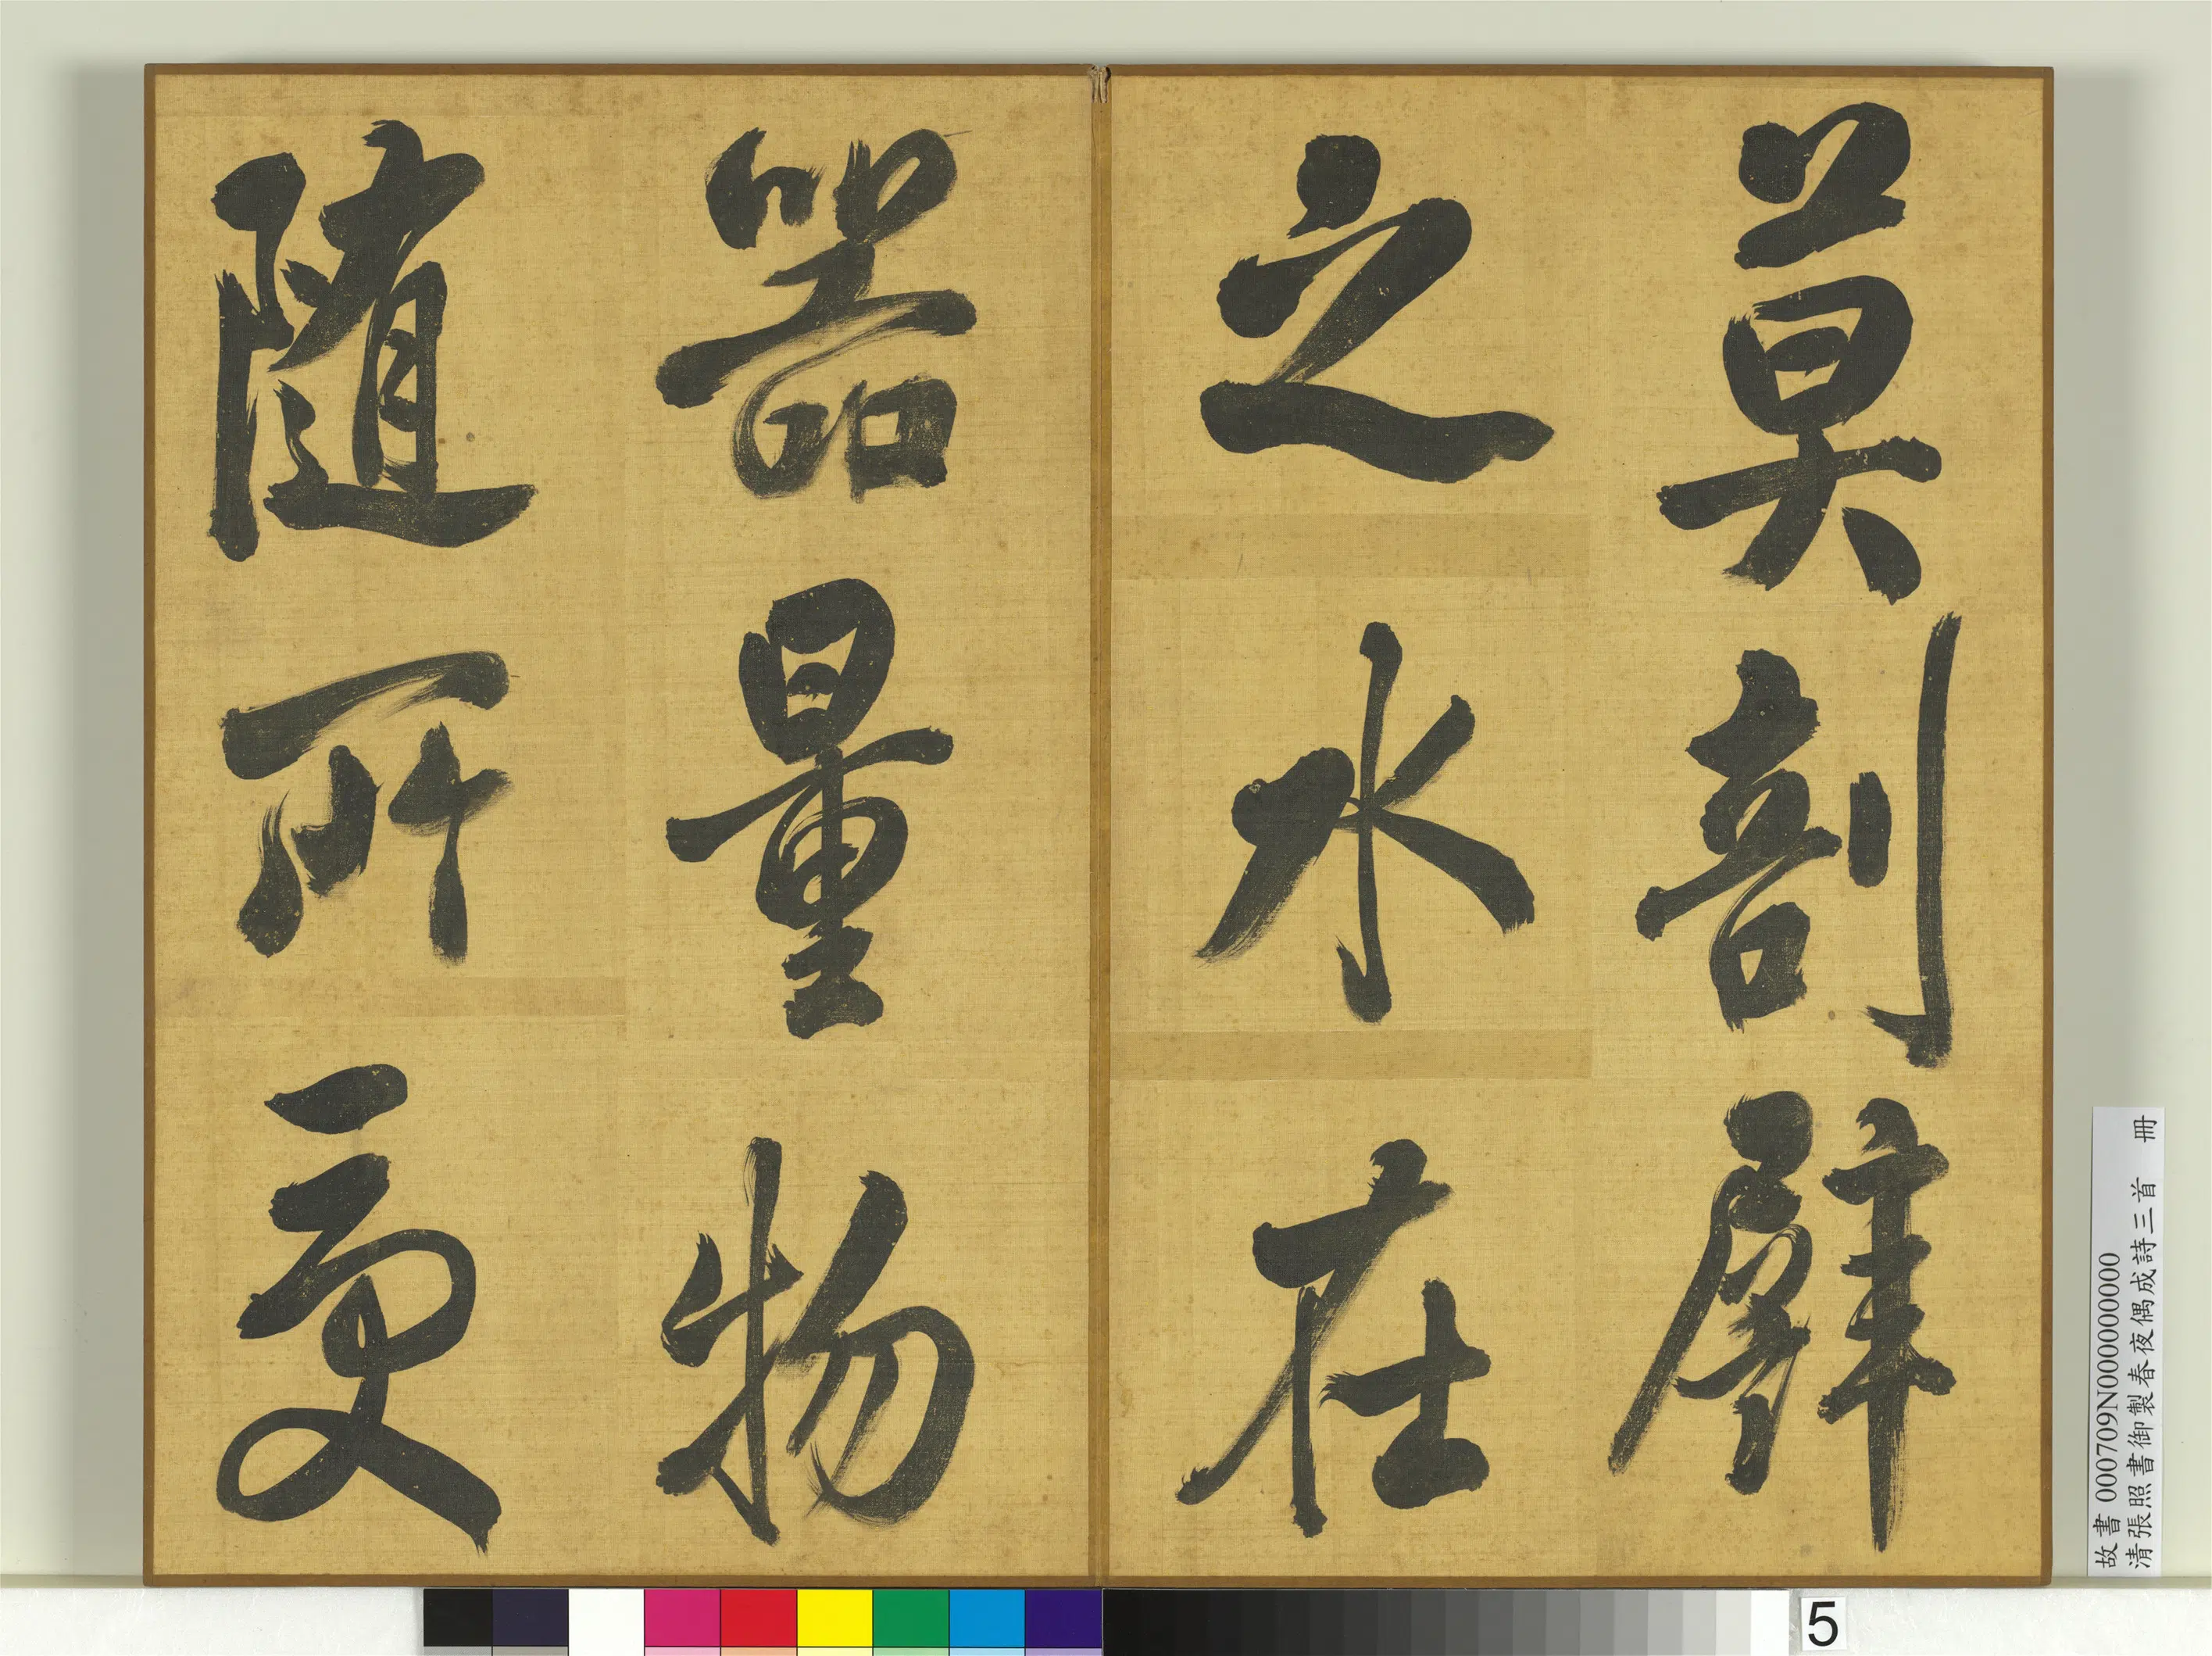 莫剖擘
之水在
器量物
随所受
故書 000709N000000000
清張照書御製春夜偶成詩三首 冊
5